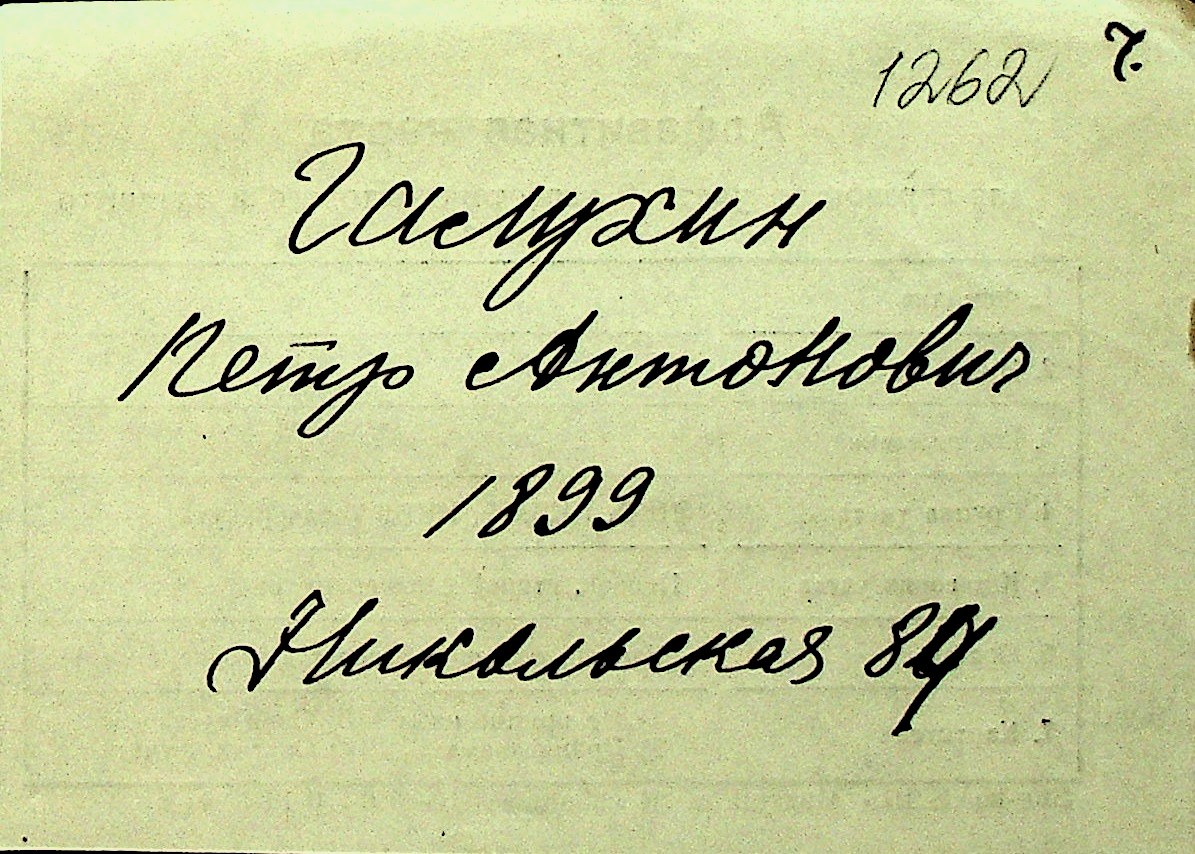 1262 7.
Галухин
Петр Антонович
1899
Никольская